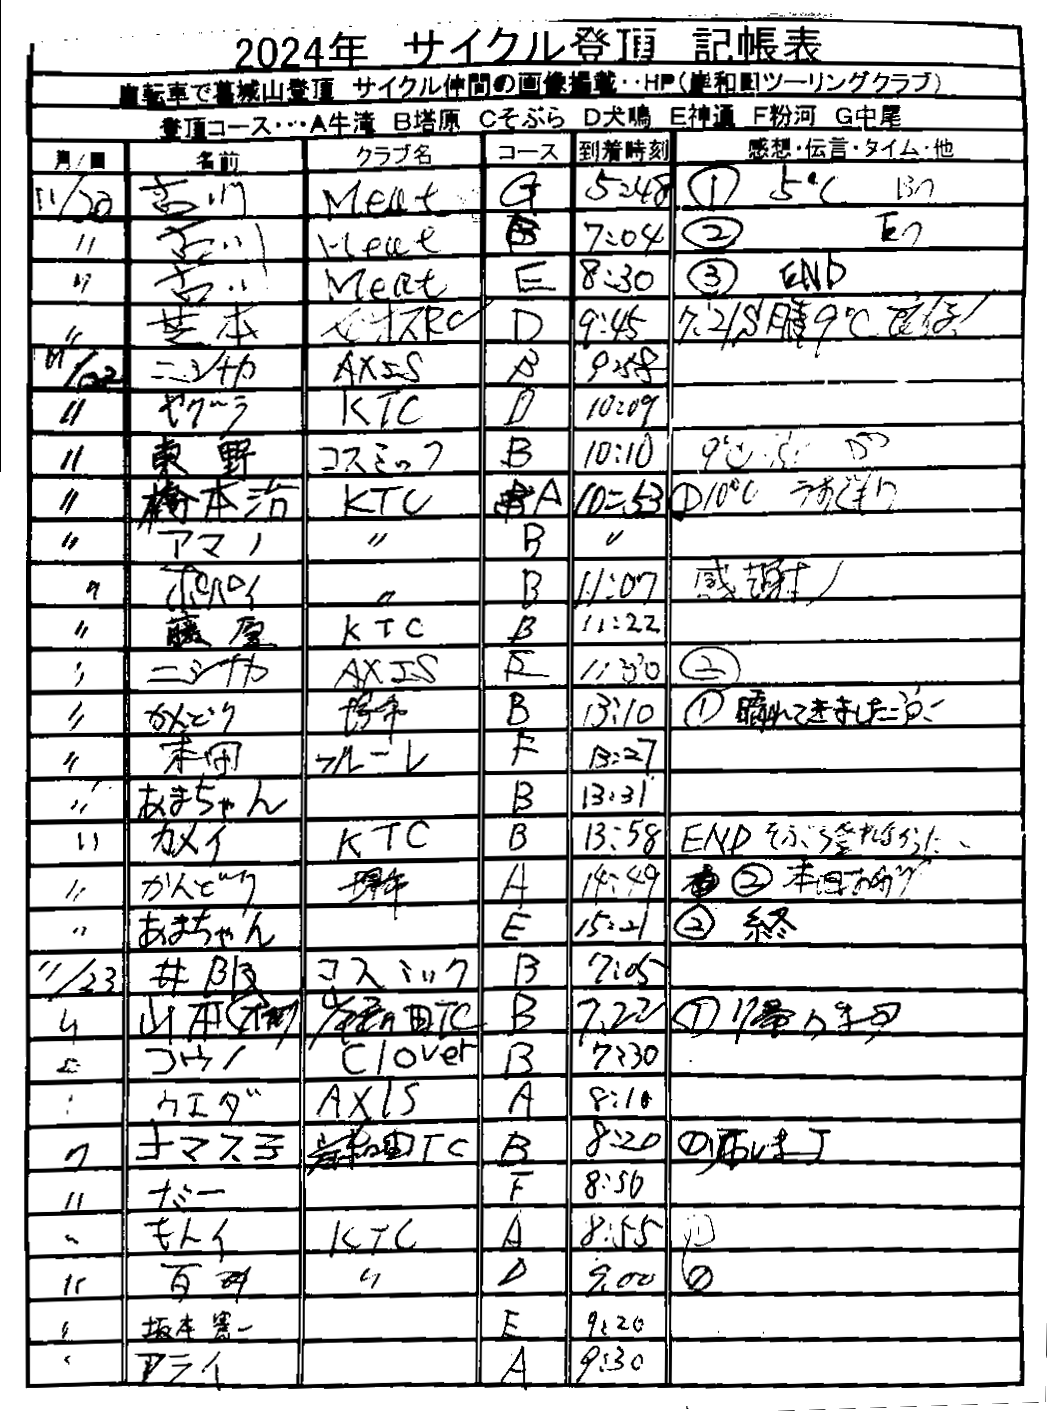 2024年 サイクル登頂 記帳表
自転車で葛城山登頂 サイクル仲間の画像掲載‥HP(岸和田ツーリングクラブ)
登頂コース‥・A牛滝 B塔原 Cそぶら D犬鳴 E神通 F粉河 G中尾
月/日 名前 クラブ名 コース 到着時刻 感想・伝言・タイム・他
11/20 吉川 Meat G 5:48 ① 5℃
〃 吉川 Meat B 7:04 ②
〃 吉川 Meat E 8:30 ③ END
〃 芝本 D 9:45 7:21 9℃
11/22 ニシナカ AXIS B 9:58
〃 ヤグラ KTC D 10:09
〃 東野 コスミック B 10:10 9℃
〃 橋本治 KTC A 10:53 ①10℃
〃 アマノ 〃 B 〃
〃 ポパイ 〃 B 11:07 感謝!
〃 藤原 KTC B 11:22
〃 ニシナカ AXIS E 11:30 ②
〃 かんどり B 13:10 ① 晴れてきました
〃 本田 ブルーレ F 13:27
〃 あまちゃん B 13:31
〃 カメイ KTC B 13:58 END そぶら登れなかった
〃 かんどり A 14:49 ②
〃 あまちゃん E 15:21 ② 終
11/23 コスミック B 7:05
〃 山本 岸和田TC B 7:22 ①
〃 コウノ Clover B 7:30
〃 ウエダ AXIS A 8:10
〃 ナマステ 岸和田TC B 8:20 ①
〃 F 8:50
〃 モトイ KTC A 8:55 ①
〃 〃 D 9:00
〃 坂本憲一 E 9:20
〃 アライ A 9:30